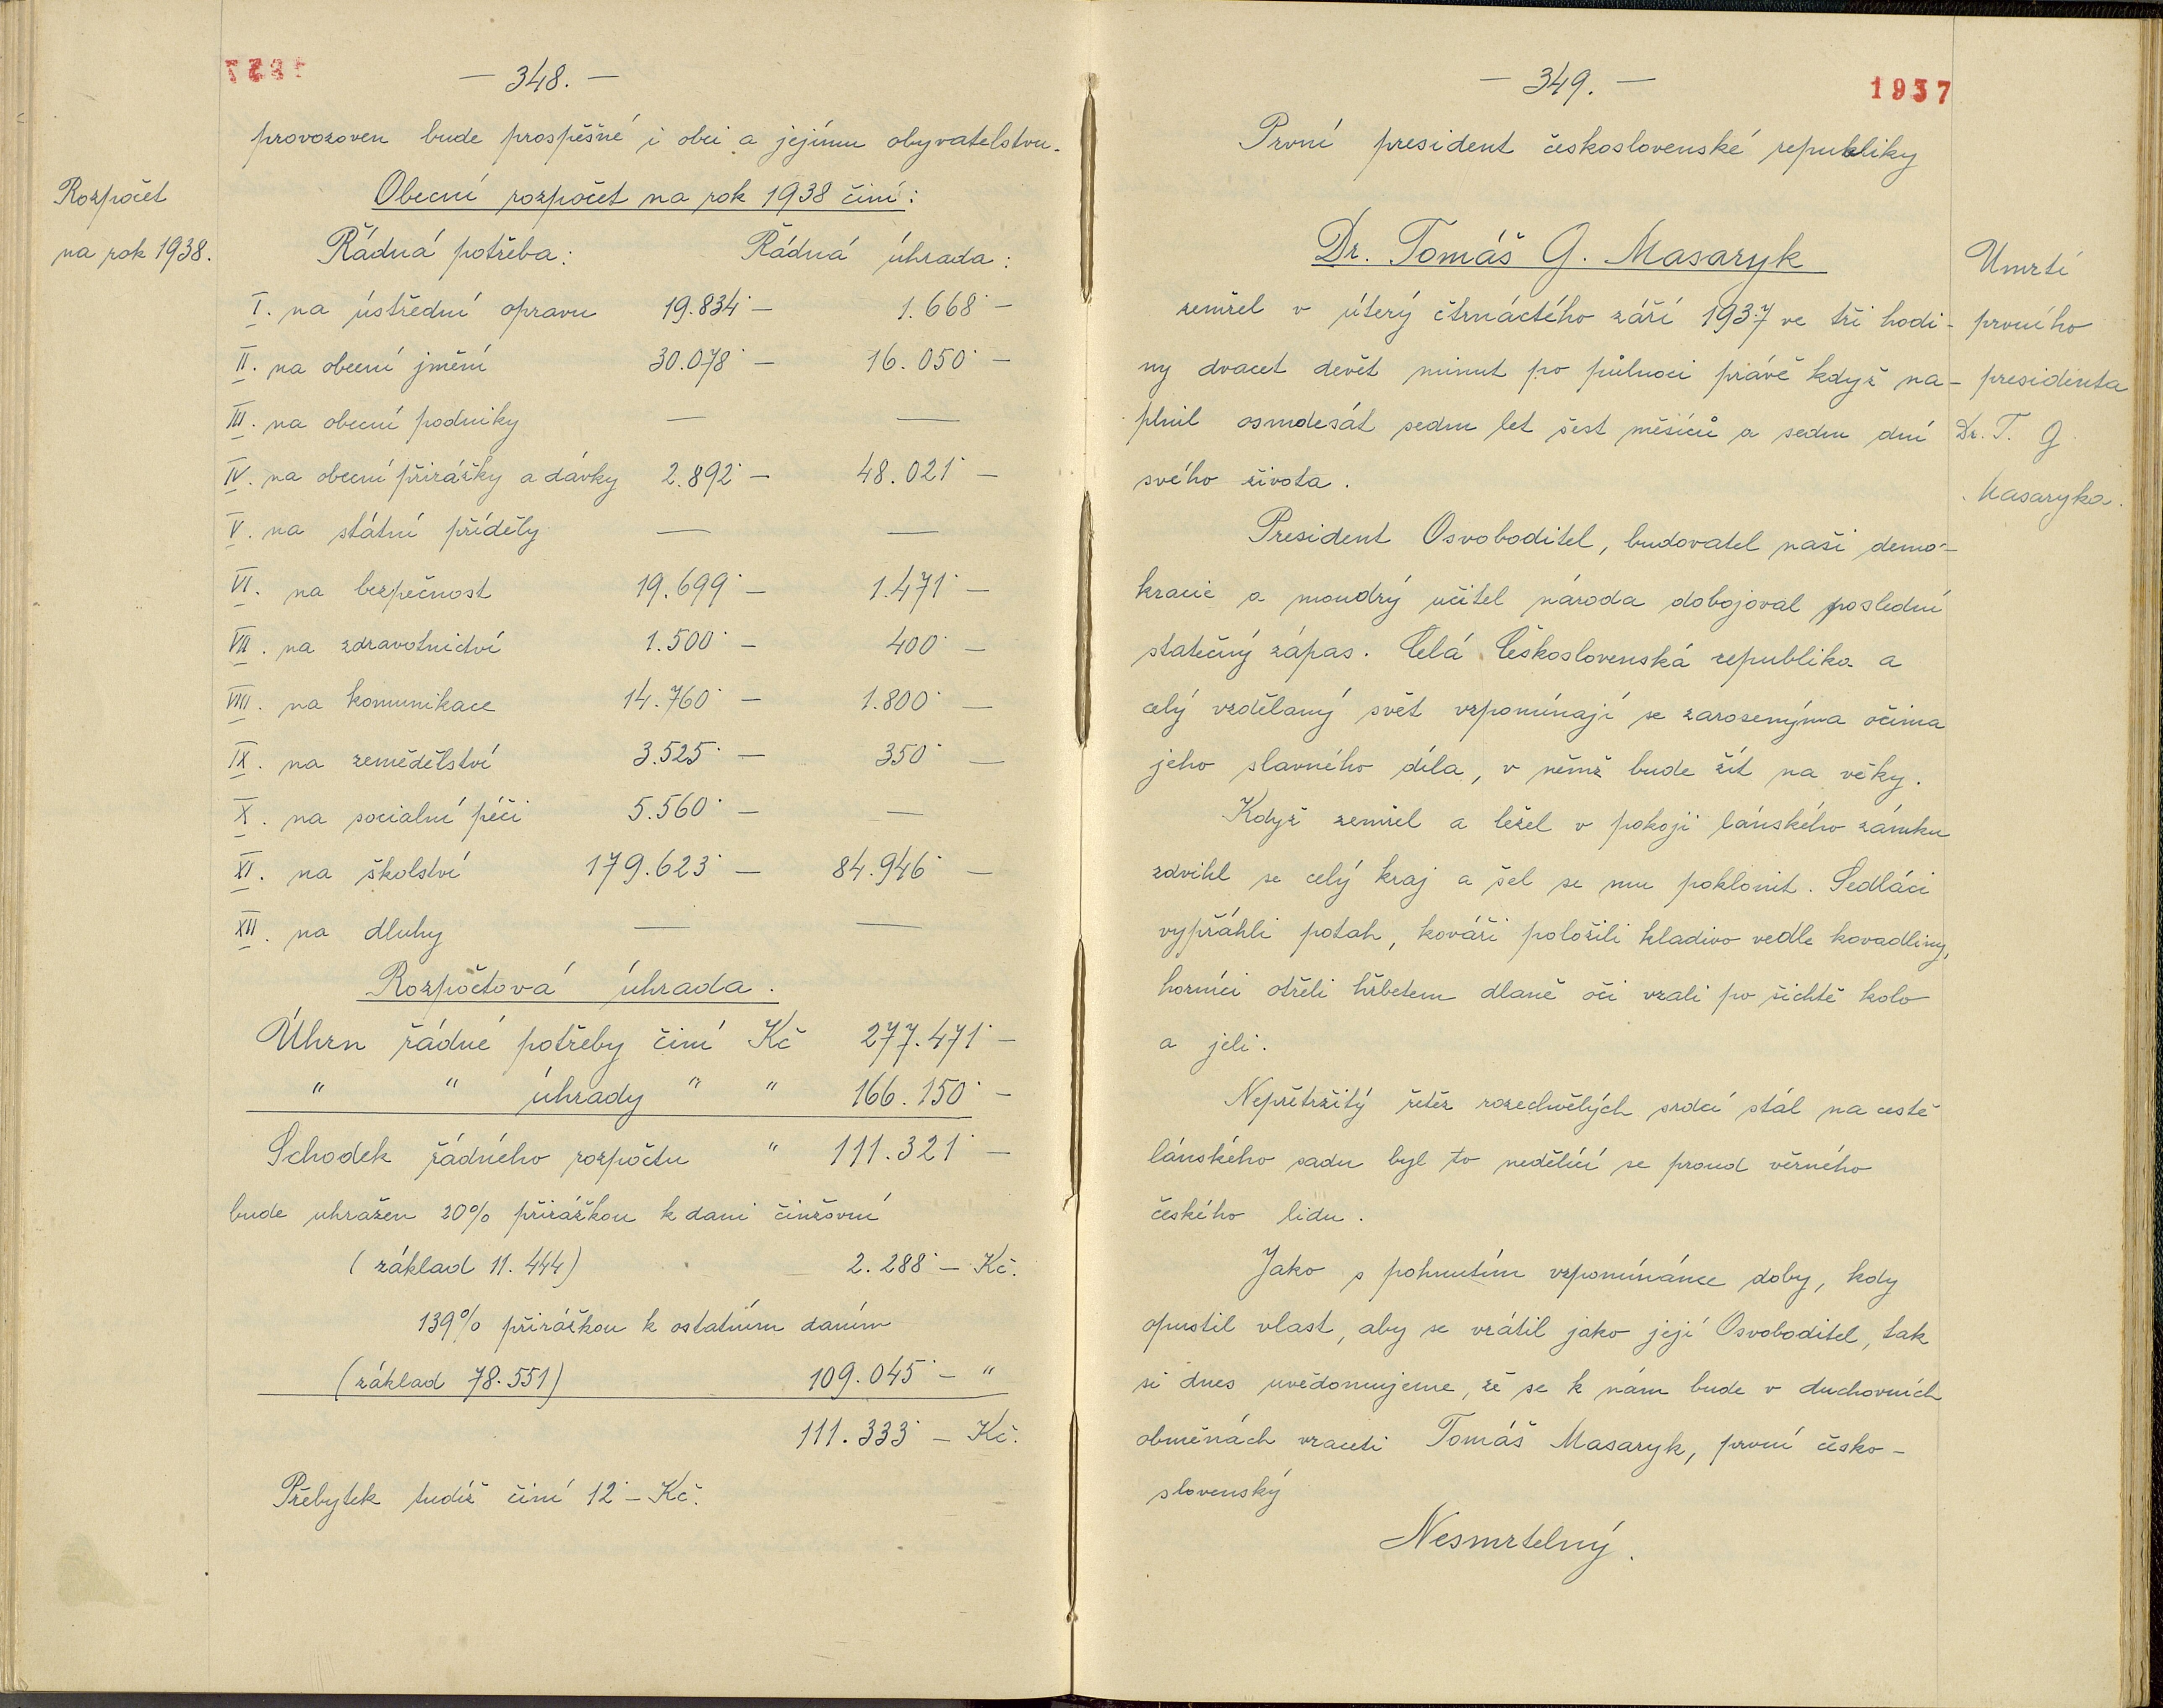 — 348. —
provozoven bude prospěšné i obci a jejímu obyvatelstvu.
Rozpočet
na rok 1938.
Obecní rozpočet na rok 1938 činí:
Řádná potřeba: Řádná úhrada:
I. na ústřední opravu 19.834˙— 1.668˙—
II. na obecní jmění 30.078˙— 16.050˙—
III. na obecní podniky — —
IV. na obecní přirážky a dávky 2.892˙— 48.021˙—
V. na státní příděly — —
VI. na bezpečnost 19.699˙— 1.471˙—
VII. na zdravotnictví 1.500˙— 400˙—
VIII. na komunikace 14.760˙— 1.800˙—
IX. na zemědělství 3.525˙— 350˙—
X. na socialní péči 5.560˙— —
XI. na školství 179.623˙— 84.946˙—
XII. na dluhy — —
Rozpočtová úhrada.
Úhrn řádné potřeby činí Kč 277.471˙—
" " úhrady " " 166.150˙—
Schodek řádného rozpočtu " 111.321˙—
bude uhražen 20% přirážkou k dani činžovní
(základ 11.444) 2.288˙— Kč.
139% přirážkou k ostatním daním
(základ 78.551) 109.045˙— "
111.333˙— Kč.
Přebytek tudíž činí 12˙— Kč.
— 349. —
1937
První president československé republiky
Dr. Tomáš G. Masaryk
zemřel v úterý čtrnáctého září 1937 ve tři hodi-
ny dvacet devět minut po půlnoci právě když na-
plnil osmdesát sedm let šest měsíců a sedm dní
svého života.
Úmrtí
prvního
presidenta
Dr. T. G
Masaryka.
President Osvoboditel, budovatel naší demo-
kracie a moudrý učitel národa dobojoval poslední
statečný zápas. Celá Československá republika a
celý vzdělaný svět vzpomínají se zarosenýma očima
jeho slavného díla, v němž bude žít na věky.
Když zemřel a ležel v pokoji lánského zámku
zdvihl se celý kraj a šel se mu poklonit. Sedláci
vypřáhli potah, kováři položili kladivo vedle kovadliny,
horníci otřeli hřbetem dlaně oči vzali po šichtě kolo
a jeli.
Nepřetržitý řetěz rozechvělých srdcí stál na cestě
lánského sadu byl to nedělící se proud věrného
českého lidu.
Jako s pohnutím vzpomínáme doby, kdy
opustil vlast, aby se vrátil jako její Osvoboditel, tak
si dnes uvědomujeme, že se k nám bude v duchovních
obměnách vraceti Tomáš Masaryk, první česko-
slovenský
Nesmrtelný.